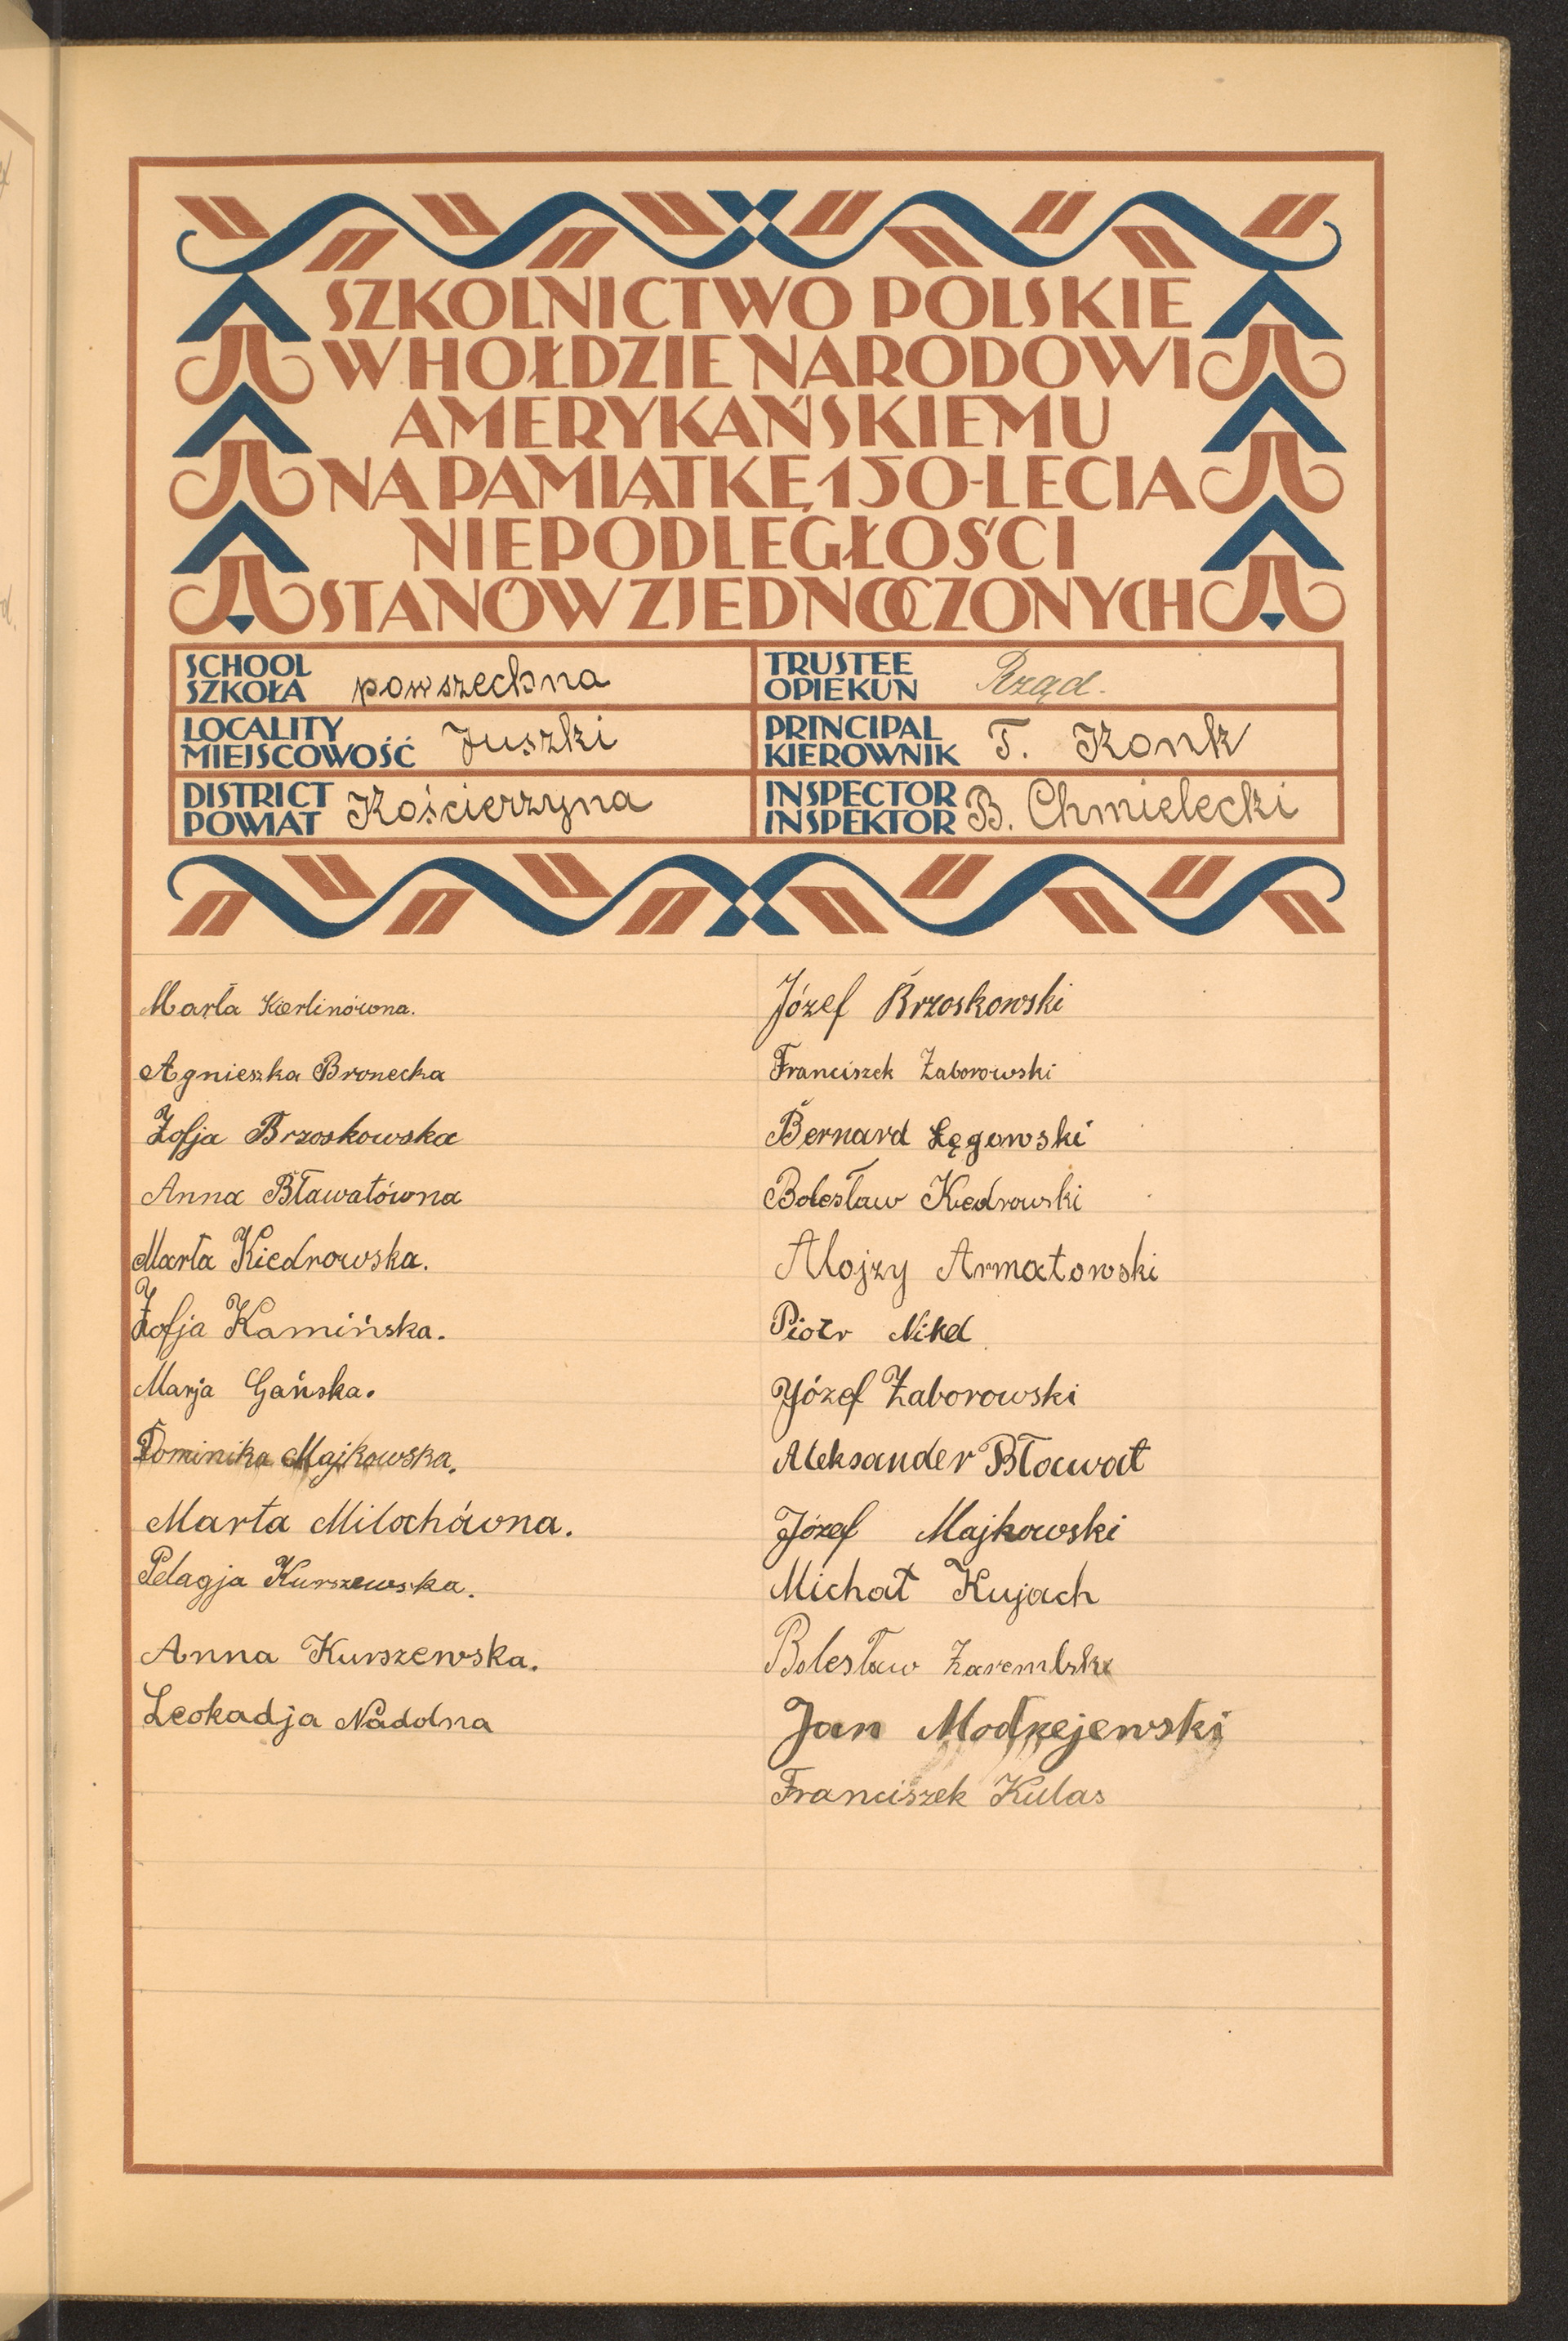 SZKOLNICTWO POLSKIE
W HOŁDZIE NARODOWI
AMERYKAŃSKIEMU
NA PAMIĄTKĘ 150-LECIA
NIEPODLEGŁOŚCI
STANÓW ZJEDNOCZONYCH
SCHOOL
SZKOŁA powszechna
TRUSTEE
OPIEKUN Rząd.
LOCALITY
MIEJSCOWOŚĆ Juszki
PRINCIPAL
KIEROWNIK T. Konk
DISTRICT
POWIAT Kościerzyna
INSPECTOR
INSPEKTOR B. Chmielecki
Marta Kierlinówna.
Agnieszka Bronecka
Zofja Brzoskowska
Anna Bławatówna
Marta Kiedrowska.
Zofja Kamińska.
Marja Gańska.
Dominika Majkowska.
Marta Milochówna.
Pelagja Kurszewska.
Anna Kurszewska.
Leokadja Nadolna
Józef Brzoskowski
Franciszek Zaborowski
Bernard Łęgowski
Bolesław Kiedrowski
Alojzy Armatowski
Piotr Nikel
Józef Zaborowski
Aleksander Bławat
Józef Majkowski
Michał Kujach
Bolesław Zarembski
Jan Modrzejewski
Franciszek Kulas